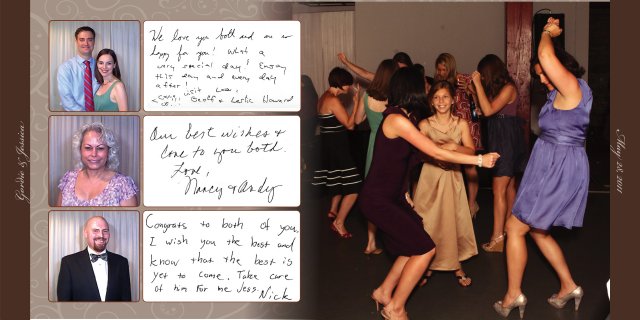 We love you both and are so
happy for you! What a
very special day! Enjoy
this day and every day
after!
visit soon.
Geoff & Leslie Howard
Our best wishes &
love to you both.
Love,
Nancy & Andy
Congrats to both of you.
I wish you the best and
know that the best is
yet to come. Take care
of him for me Jess.
Nick
Gordie & Jessica
May 28, 2011